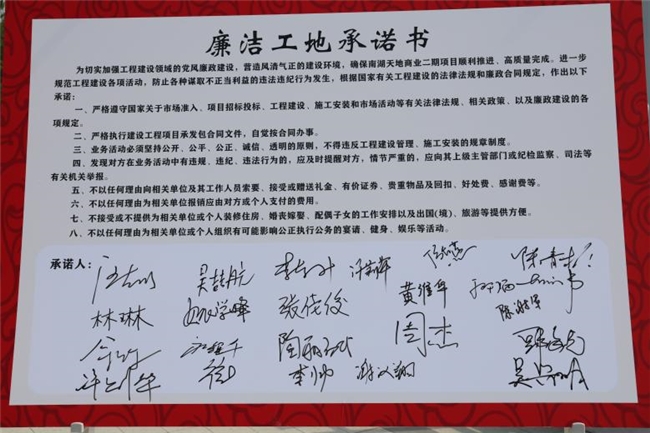 廉洁工地承诺书
为切实加强工程建设领域的党风廉政建设，营造风清气正的建设环境，确保南湖天地商业二期项目顺利推进、高质量完成。进一步
规范工程建设各项活动，防止各种谋取不正当利益的违法违纪行为发生，根据国家有关工程建设的法律法规和廉政合同规定，作出以下
承诺：
一、严格遵守国家关于市场准入、项目招标投标、工程建设、施工安装和市场活动等有关法律法规、相关政策、以及廉政建设的各
项规定。
二、严格执行建设工程项目承发包合同文件，自觉按合同办事。
三、业务活动必须坚持公开、公平、公正、诚信、透明的原则，不得违反工程建设管理、施工安装的规章制度。
四、发现对方在业务活动中有违规、违纪、违法行为的，应及时提醒对方，情节严重的，应向其上级主管部门或纪检监察、司法等
有关机关举报。
五、不以任何理由向相关单位及其工作人员索要、接受或赠送礼金、有价证券、贵重物品及回扣、好处费、感谢费等。
六、不以任何理由为相关单位报销应由对方或个人支付的费用。
七、不接受或不提供为相关单位或个人装修住房、婚丧嫁娶、配偶子女的工作安排以及出国(境)、旅游等提供方便。
八、不以任何理由为相关单位或个人组织有可能影响公正执行公务的宴请、健身、娱乐等活动。
承诺人：
吴喆航
黄维华
林琳
张佬俊
周杰
李帅